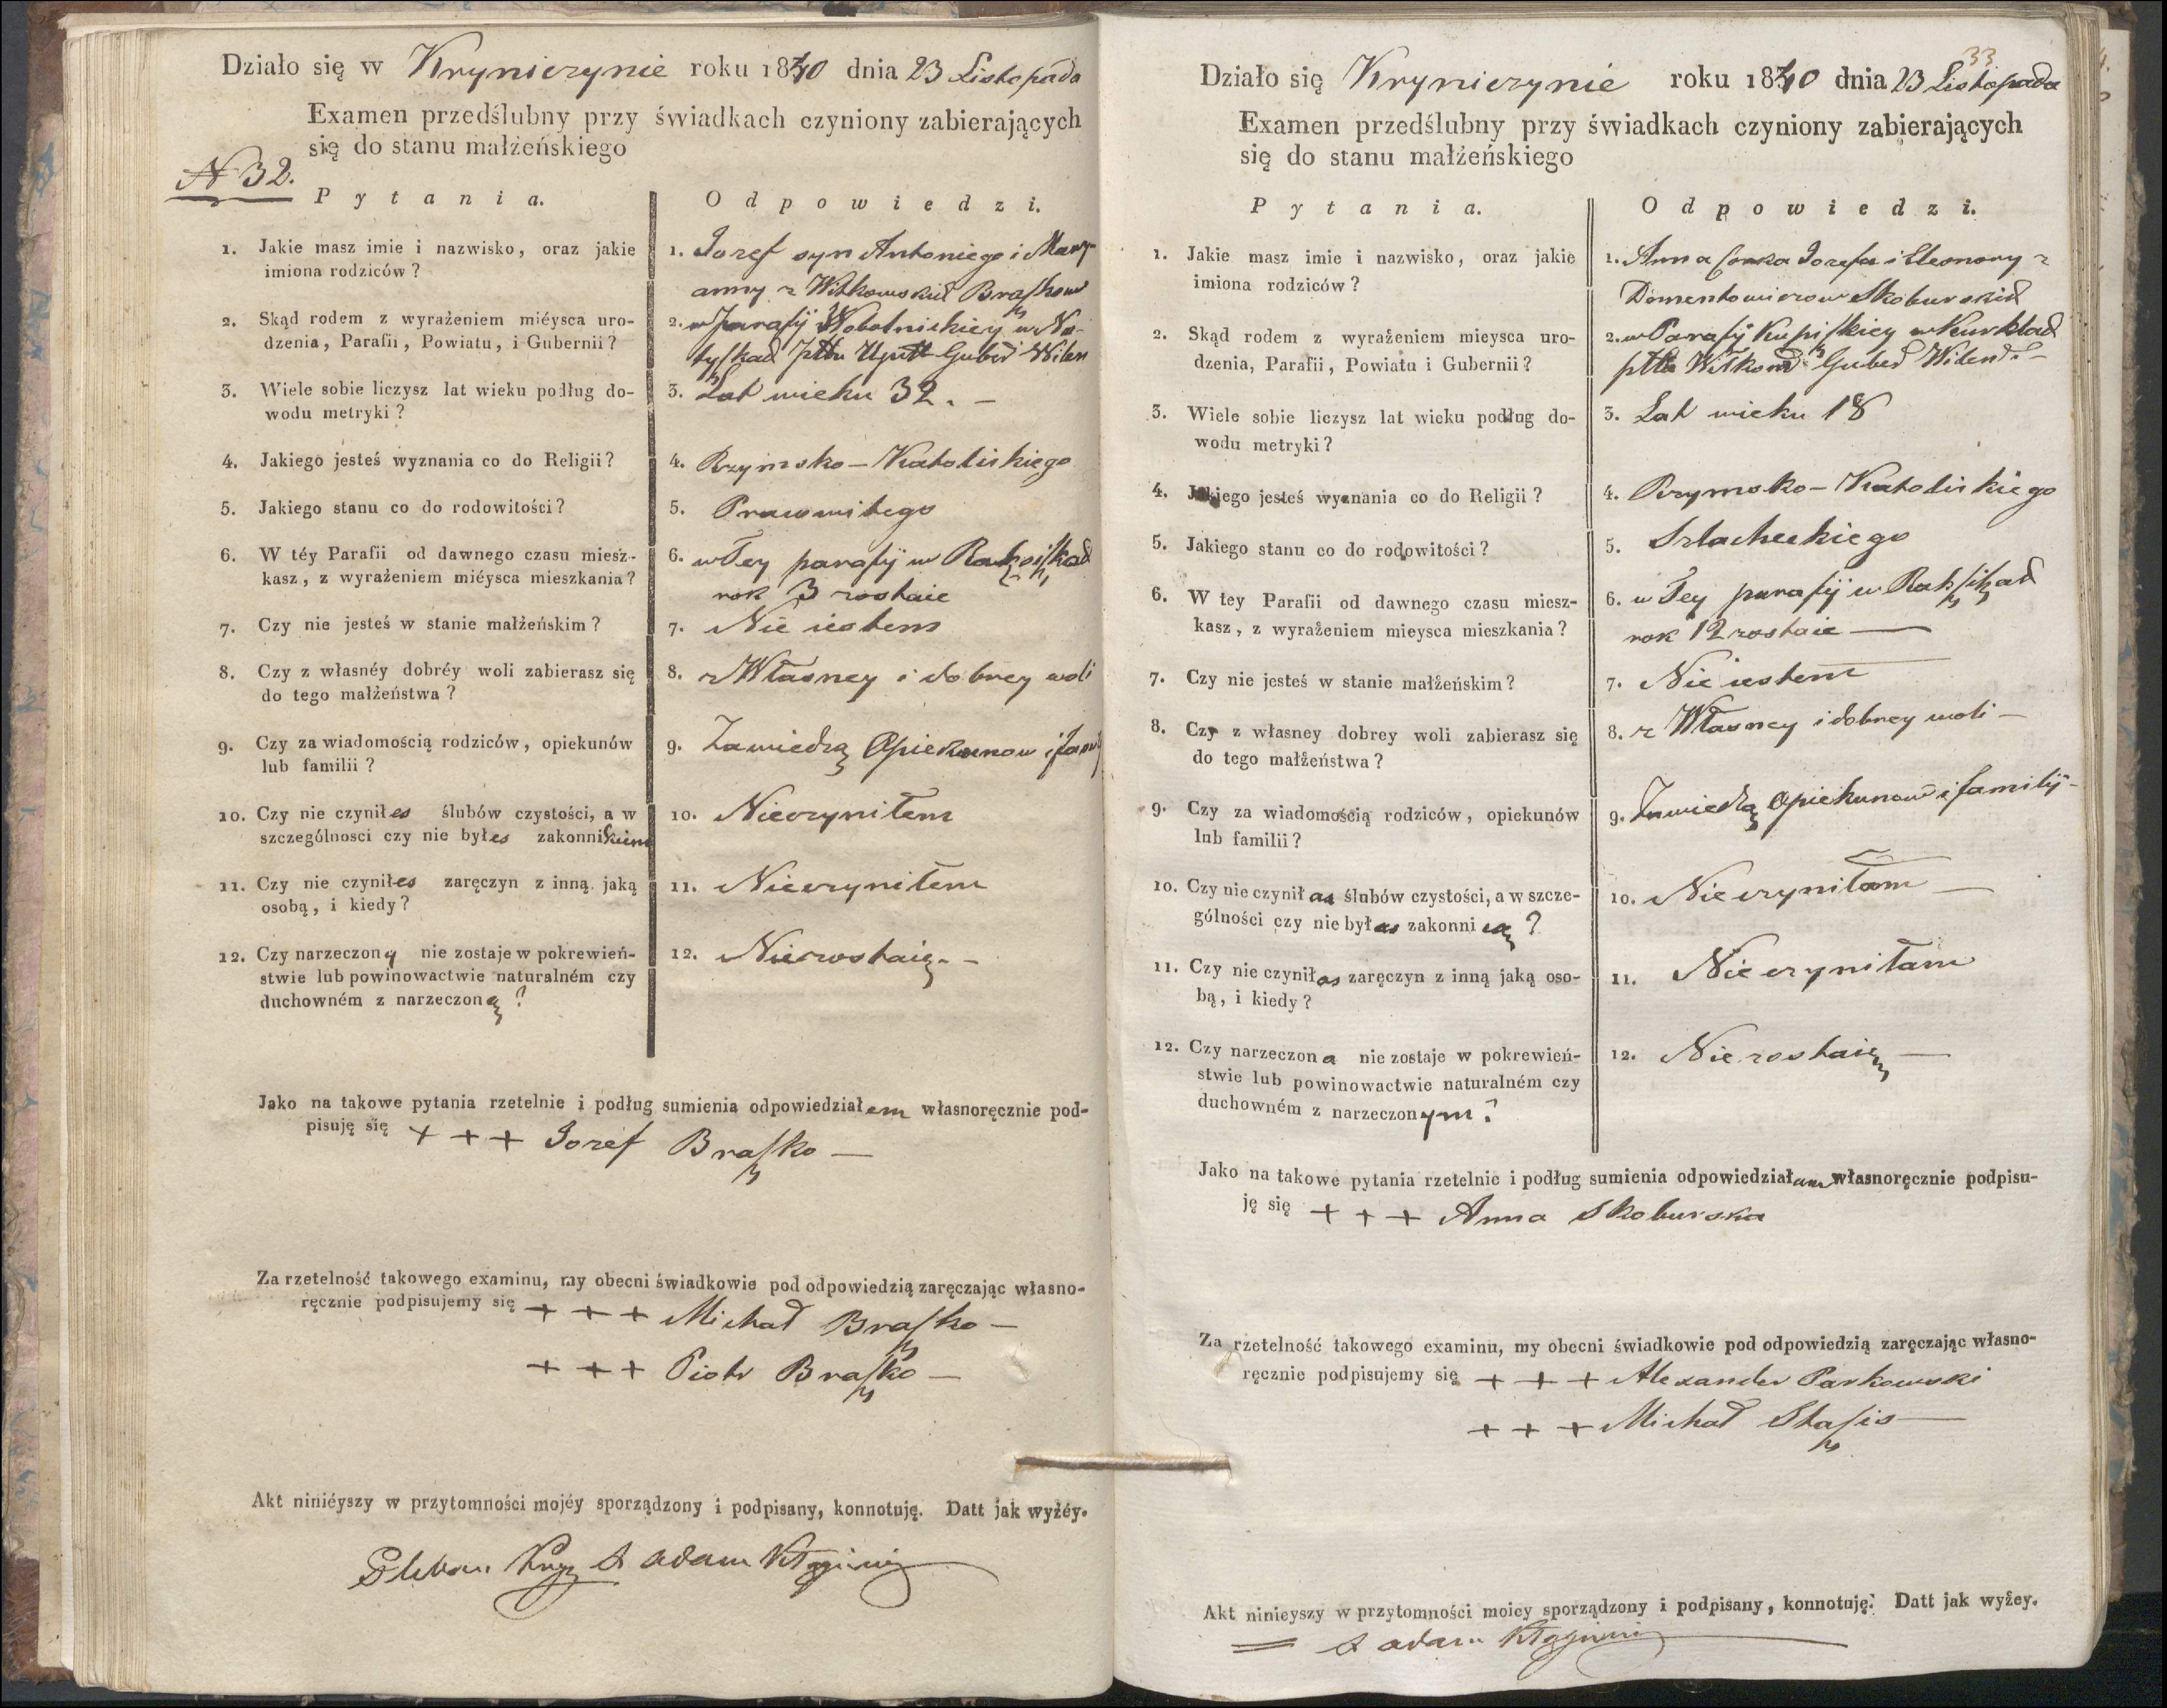 Działo się w Kryniczynie roku 1840 dnia 23 Listopada
Examen przedślubny przy świadkach czyniony zabierających
się do stanu małżeńskiego
N 32.
Pytania.
Odpowiedzi.
1. Jakie masz imie i nazwisko, oraz jakie
imiona rodziców?
1. Jozef syn Antoniego i Mary-
anny z Witkowskich Braszkow
2. Skąd rodem z wyrażeniem miéysca uro-
dzenia, Parafii, Powiatu, i Gubernii?
2. w Parafij
Guber Wilen
3. Wiele sobie liczysz lat wieku podług do-
wodu metryki?
3. Lat wieku 32. -
4. Jakiego jesteś wyznania co do Religii?
4. Rzymsko - Katolickiego
5. Jakiego stanu co do rodowitości?
5. Pracowitego
6. W téy Parafii od dawnego czasu miesz-
kasz, z wyrażeniem miéysca mieszkania?
6. w Tey parafij w
rok 3 zostaie
7. Czy nie jesteś w stanie małżeńskim?
7. Nie iestem
8. Czy z własnéy dobréy woli zabierasz się
do tego małżeństwa?
8. z Własney i dobrey woli
9. Czy za wiadomością rodziców, opiekunów
lub familii?
9. Zawiedzą Opiekunow i
10. Czy nie czyniłes ślubów czystości, a w
szczególnosci czy nie byłes zakonnikiem
10. Nieczyniłem
11. Czy nie czyniłes zaręczyn z inną jaką
osobą, i kiedy?
11. Nieczyniłem
12. Czy narzeczony nie zostaje w pokrewień-
stwie lub powinowactwie naturalném czy
duchowném z narzeczoną?
12. Niezostaię. -
Jako na takowe pytania rzetelnie i podług sumienia odpowiedziałem własnoręcznie pod-
pisuję się + + + Jozef Braszko -
Za rzetelność takowego examinu, my obecni świadkowie pod odpowiedzią zaręczając własno-
ręcznie podpisujemy się + + + Michał Braszko -
+ + + Piotr Braszko -
Akt niniéyszy w przytomności mojéy sporządzony i podpisany, konnotuję. Datt jak wyżéy.
Pleban X Adam
33
Działo się Kryniczynie roku 1840 dnia 23 Listopada
Examen przedślubny przy świadkach czyniony zabierających
się do stanu małżeńskiego
Pytania.
Odpowiedzi.
1. Jakie masz imie i nazwisko, oraz jakie
imiona rodziców?
1. Anna Corka Jozefa i Eleonory z
Domentowiczow Skoburskich
2. Skąd rodem z wyrażeniem mieysca uro-
dzenia, Parafii, Powiatu i Gubernii?
2. w Parafij Kupiszkiey w
Guber Wilen
3. Wiele sobie liczysz lat wieku podług do-
wodu metryki?
3. Lat wieku 18
4. Jakiego jesteś wyznania co do Religii?
4. Rzymsko - Katolickiego
5. Jakiego stanu co do rodowitości?
5. Szlacheckiego
6. W tey Parafii od dawnego czasu miesz-
kasz, z wyrażeniem mieysca mieszkania?
6. w Tey parafij w
rok 12 zostaie -
7. Czy nie jesteś w stanie małżeńskim?
7. Nie iestem
8. Czy z własney dobrey woli zabierasz się
do tego małżeństwa?
8. z Własney i dobrey woli -
9. Czy za wiadomością rodziców, opiekunów
lub familii?
9. Zawiedzą Opiekunow i familij -
10. Czy nie czyniłas ślubów czystości, a w szcze-
gólności czy nie byłas zakonnicą?
10. Nie czyniłam -
11. Czy nie czyniłas zaręczyn z inną jaką oso-
bą, i kiedy?
11. Nie czyniłam
12. Czy narzeczona nie zostaje w pokrewień-
stwie lub powinowactwie naturalném czy
duchowném z narzeczonym?
12. Nie zostaię -
Jako na takowe pytania rzetelnie i podług sumienia odpowiedziałam własnoręcznie podpisu-
ję się + + + Anna Skoburska
Za rzetelność takowego examinu, my obecni świadkowie pod odpowiedzią zaręczając własno-
ręcznie podpisujemy się + + + Alexander Parkowski
+ + + Michał Staszis -
Akt ninieyszy w przytomności moiey sporządzony i podpisany, konnotuję. Datt jak wyżey.
X Adam